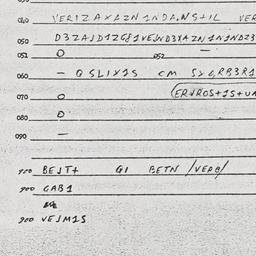 040 VERIZAXAZNINDA,NS+IL VER
050 D3ZAJD1ZG81VEJND3XAZN1N1NDZ3
051 O 052 —
060 — QSLIX1S CM
070 O (ERVROS+1S+UA
080 O
090 —
900 BEJT+ GI BETN /VERB/
900 GAB1
900 VEJM1S